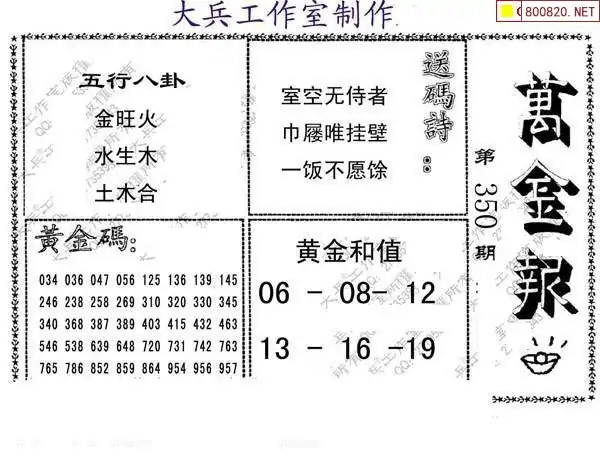 大兵工作室制作
800820.NET
五行八卦
金旺火
水生木
土木合
送碼詩：
室空无侍者
巾屦唯挂壁
一饭不愿馀
萬金報
第350期
黃金碼：
034 036 047 056 125 136 139 145
246 238 258 269 310 320 330 345
340 368 387 389 403 415 432 463
546 538 639 648 720 731 742 763
765 786 852 859 864 954 956 957
黄金和值
06 - 08- 12
13 - 16 -19